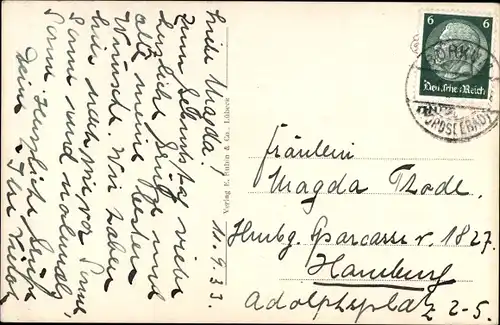 Liebe Magda!
Zum Geburtstag viele
herzliche Grüsse und
alle meine besten
Wünsche. Wir haben
hier nach wie vor Sonne
Sonne und nochmals
Sonne. Herzliche Grüsse
Deine
11.9.33.
Verlag E. Rubin & Co., Lübeck
6 6
Deutsches Reich
NORDSEEBAD
Fräulein
Magda Thode.
Hmbg. Sparcasse v. 1827.
Hamburg
Adolphsplatz 2-5.